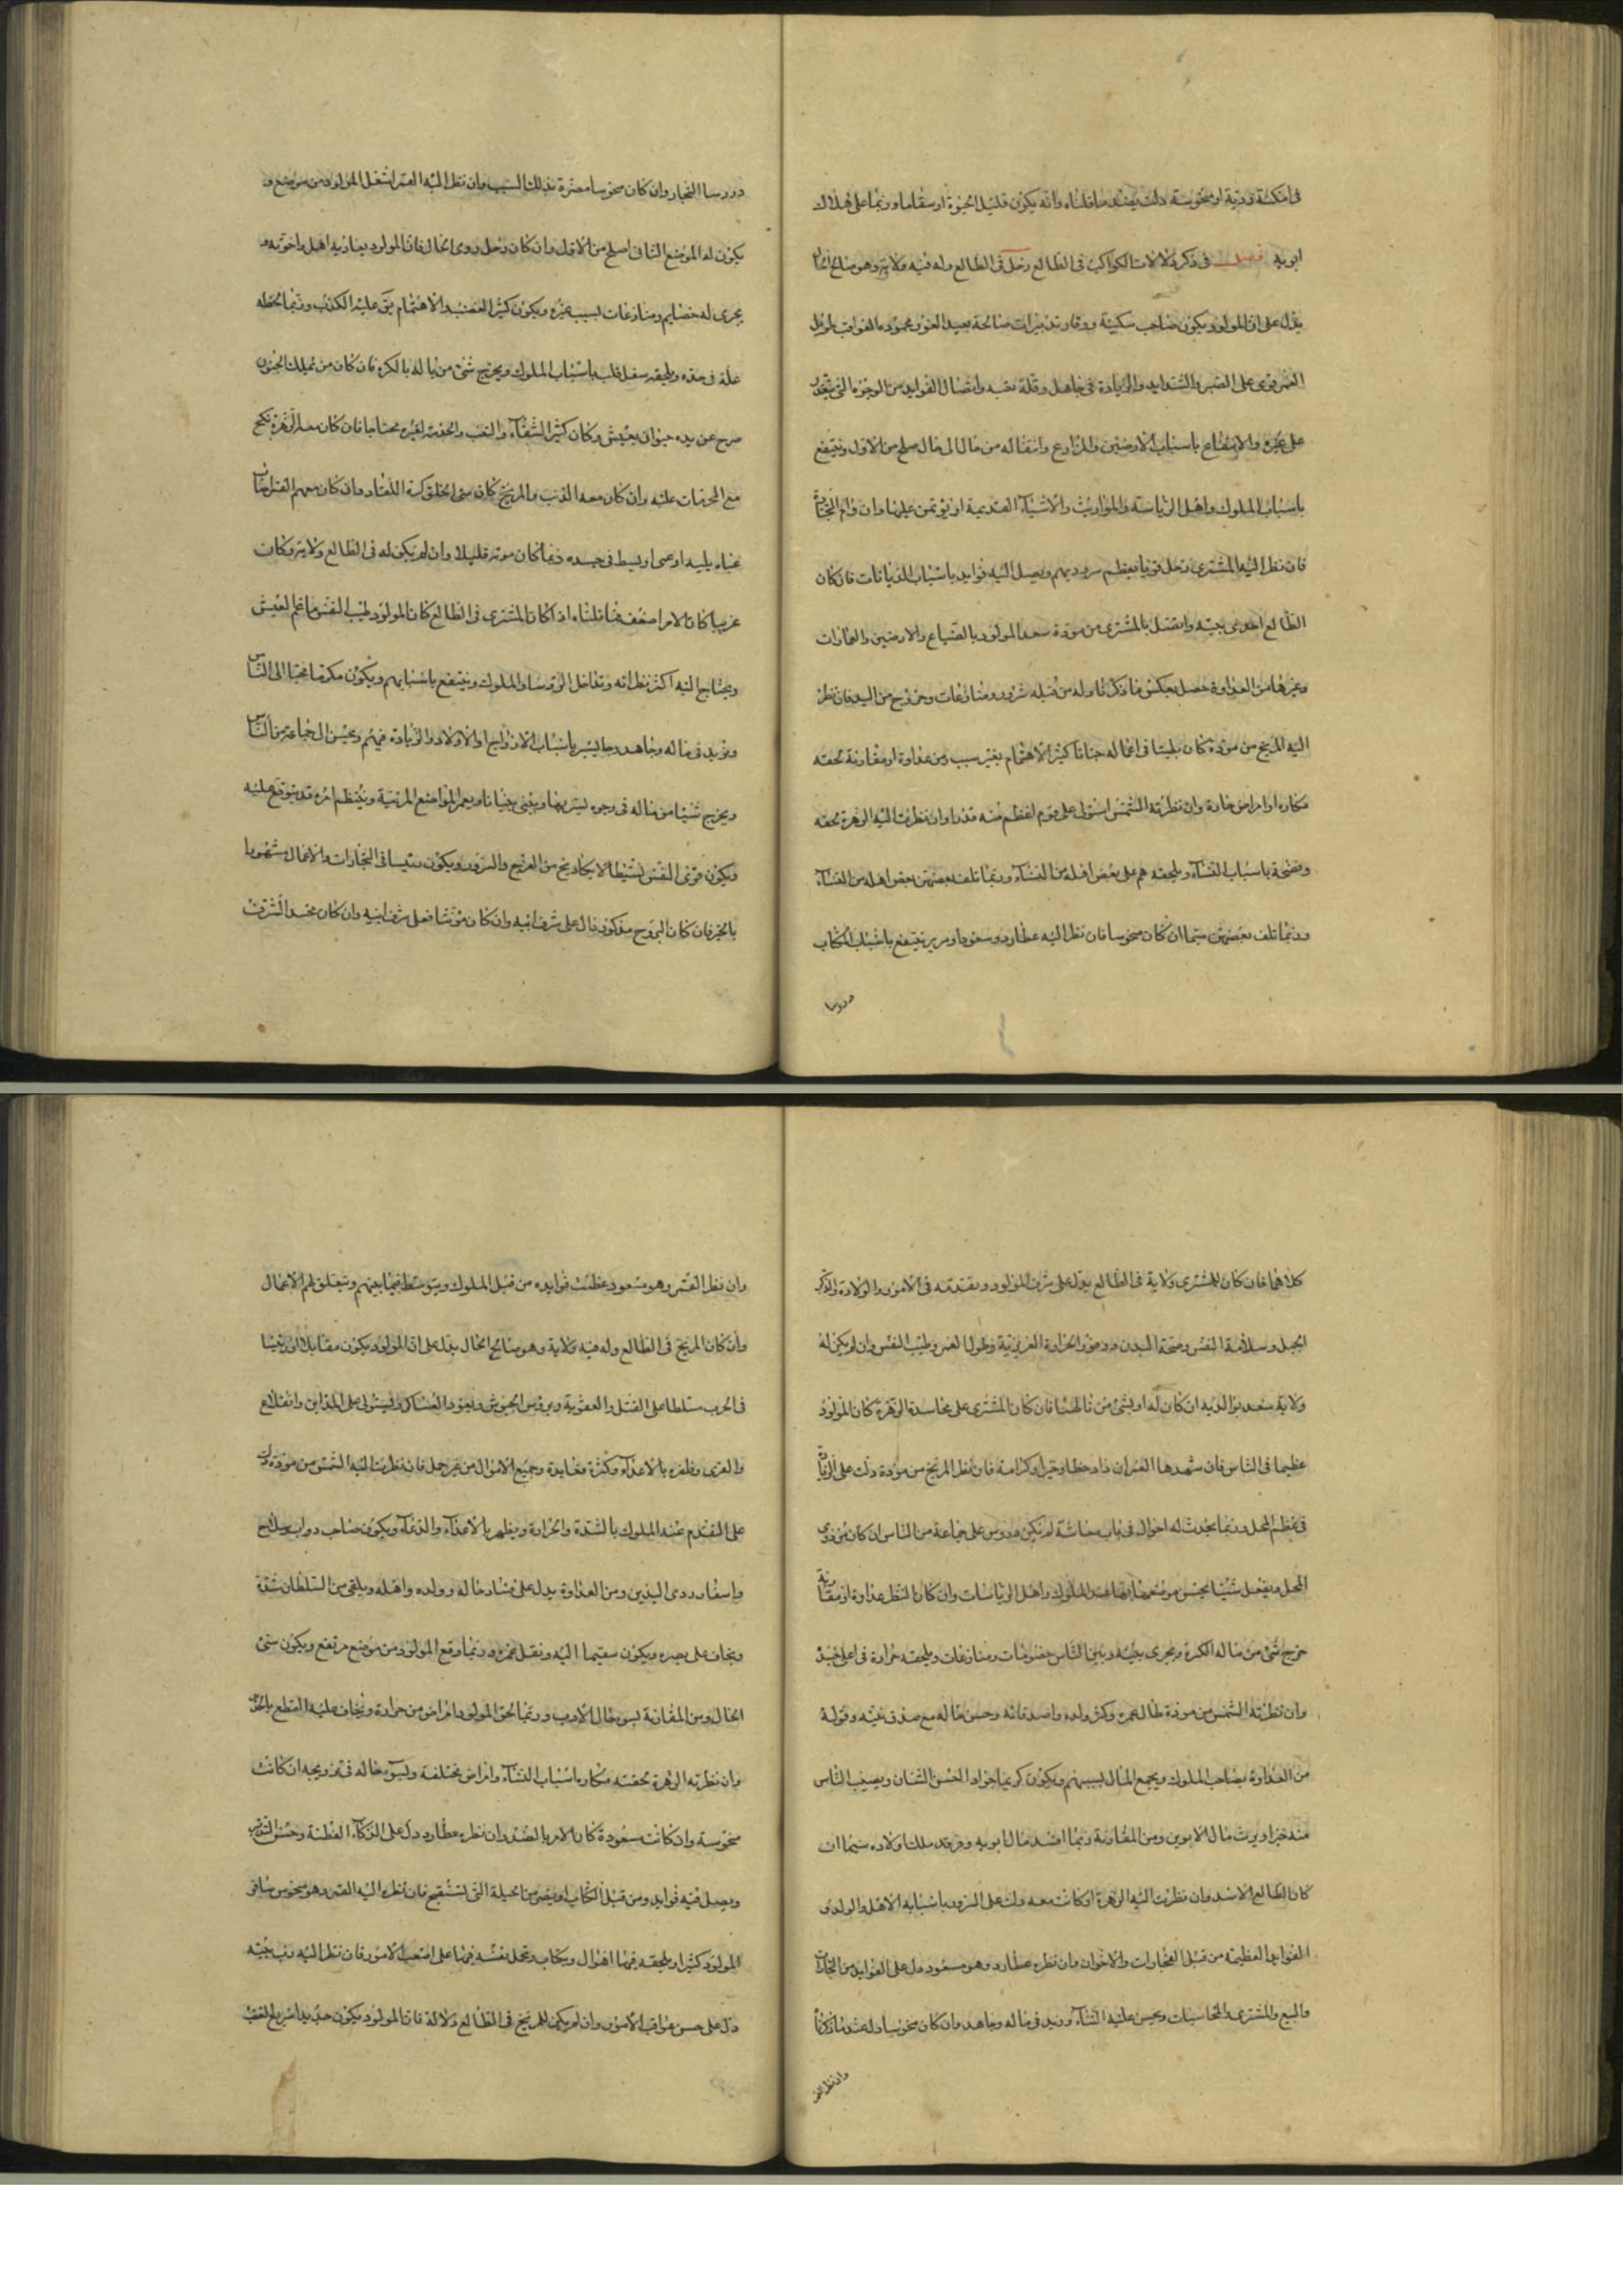 في امكنة ردية او منحوسة دلت بضد ما قلناه وانه يكون قليل الحيوة او سقاما وربما على هلاك
ابويه فصل في ذكر دلالات الكواكب في الطالع زحل في الطالع وله فيه ولاية وهو صالح الحال
يدل على ان المولود يكون صاحب سكينة ووقار وتدبيرات صالحة بعيد الغور محمود العواقب طويل
العمر قوى على الصبر والشدايد والزيادة في جاهل وقلة نصبه واتصال الفوايد من الوجوه التي تتعذر
على غيره والانتفاع باسباب الارضين والمزارع وانتقاله من حال الى حال صلح من الاول وينتفع
باسباب الملوك واهل الرياسة والمواريث والاشياء القديمة او يؤتمن عليها وان رام
فان نظر اليه المشترى وزحل قويا يعظم سروره بهم ويصل اليه فوايد باسباب الديانات فان كان
الطالع احدى بيتيه واتصل بالمشترى من مودة سعد المولود بالضياع والارضين والعمارات
وغيرها من العداوة حصل بعكس ما ذكرنا وله من قبله شرور ومنازعات وخروج من اليد فان نظر
اليه المريخ من مودة كان بليتا في اعماله جبانا كثير الاهتمام بغير سبب ومن عداوة او مقارنة لحقه
مكاره او امراض حادة وان نظرته الشمس استولى على قوم اعظم منه قدرا وان نظرت اليه الزهرة لحقه
وفضيحة باسباب النساء ويلحقه هم على بعض اهله من النساء وربما تلف بعضهن بعض اهله من النساء
وربما تلف بعضهن سيما ان كان منحوسا فان نظر اليه عطارد وسعودا ينتفع باسباب الكتاب
ورؤسا
ورؤسا التجار وان كان منحوسا مضرة بذلك السبب وان نظر اليه القمر انتقل المولود من موضع و
يكون له الموضع الثانى اصلح من الاول وان كان زحل ردى الحال فان المولود يعاديه اهل واخوته و
يجرى له خصايم ومنازعات لسبب غيره ويكون كثير الغضب والاهتمام عليه الكذب وربما لحقه
علة في ويشتغل قلبه باسباب الملوك ويخرج شئ من ماله بالكره فان كان من
من يده حيوان يعيش وكان كثير الشقاء والتعب والخدمة لغيره محتاجا فان كان معه الزهرة نكح
مع المحرمات عليه وان كان معه الذنب والمريخ كان سئ الخلق وان كان معهم القمر
او عمى او يبسط في جسده وربما كان موته قليلا وان لم يكن له في الطالع ولاية وكان
غريبا كان الامر اضعف مما قلناه اذا كان المشترى في الطالع كان المولود طيب النفس ناعم العيش
ويحتاج اليه اكثر نظرائه وتداخل الروسا والملوك وينتفع باسبابهم ويكون مكرما محببا الى الناس
ويزيد في ماله وجاهه وما يسر باسباب الازواج او الاولاد والزيادة فيهم ويحسن الى جماعة من الناس
ويخرج شيئا من ماله في وجوه يسر بها ويبنى بنيانا ويعمر المواضع المرتبة وينتظم امره قد يتوقع عليه
ويكون قوى النفس نشيطا لا يكاد يخ من الفرح والسرور ويكون رئيسا في التجارات والاعمال مشهورا
بالخير فان كان البروج مذكور دال على شرف ابيه وان كان مؤنثا فعل شرف ابنيه وان كان الشرف
كلاهما فان كان للمشترى ولاية في الطالع يدل على شرف المولود وتقدمه في الامور والولادة والذكر
الجميل وسلامة النفس وصحة البدن ووفور الحرارة الغريزية وطول العمر وطيب النفس وان لم يكن له
ولاية سعد بوالديه ان كان له او بشئ من مالهما فان كان المشترى على محاسدة الزهرة كان المولود
عظيما في الناس فان شهدها القمران زاد حظا وخيرا وكرامة فان نظر المريخ من مودة دلت على الزيادة
في عظم المحل وربما يحدث له احوال في باب معاشه لم تكن وروس على جماعة من الناس ان كان
المحل ويفعل شيئا يحسن موضعه ايضا عند الملوك واهل الرياسات وان كان النظر عداوة او مقارنة
خرج شئ من ماله بالكره ويجرى بينه وبين الناس خصومات ومنازعات ويلحقه حرارة في اعلى جسده
وان نظرته الشمس من مودة طال عمره وكثر ولده واصدقائه وحسن حاله مع صدق نيته وقوله
من العداوة يصاحب الملوك ويجمع المال لسببهم ويكون كريما جوادا الحسن الشان ويصيب الناس
منه خيرا ويرث مال الابوين ومن المقارنة ربما افسد مال ابويه اولاده سيما ان
كان الطالع الاسد وان نظرت اليه الزهرة او كانت معه دلت على السرور باسبابه الاهل والولد و
الفوايد العظيمة من قبل التجارات والاخوان وان نظره عطارد وهو مسعود دل على الفوايد من التجارات
والبيع والمشترى والمحاسبات ويحسن عليه الثناء ويزيد في ماله وجاهه وان كان منحوسا دل ضد ما ذكرنا
وان نظر القمر
وان نظر القمر وهو مسعود عظمت فوايده من قبل الملوك ويتوسط فيما بينهم ويتعلق لهم الاعمال
وان كان المريخ في الطالع وله فيه ولاية وهو صالح الحال يدل على ان المولود يكون مقاتلا او رئيسا
في الحرب متسلطا على القتل والعقوبة ويروس الجيوش ويقود العساكر ويستولى على المداين والقلاع
والقرى وظفره بالاعداء وكثرة وجميع الاموال من غير حل فان نظرت اليه الشمس من مودة دلت
على التقدم عند الملوك بالشدة والحرارة ويظهر بالاعداء والدعاء ويكون صاحب دواب وسلاح
واسفار ردى اليدين ومن العداوة يدل على فساد حاله وولده واهله ويلقى من السلطان شدة
ويخاف على بصره ويكون سقيما اليه ونقل عمره وربما وقع المولود من موضع مرتفع ويكون سئ
الحال ومن المقارنة لسوء حال الاب وربما لحق المولود امراض من حرارة ويخاف عليه القطع بالحديد
وان نظرته الزهرة لحقته مكاره باسباب النساء وامراض مختلفة ولسوء حاله في تزويجه ان كانت
منحوسة وان كانت سعودة كان الامر بالضد وان نظره عطارد دل على الذكاء الفطنة وحسن التدبير
ويصل فيه فوايد ومن قبل الكتاب او يضر من الحيلة التى تستقبح فان نظره اليه القمر وهو منحوس سافر
المولود كثيرا ويلحقه فيها اهوال ومخاب ويحمل نفسه فيها على اصعب الامور فان نظر اليه رب بيته
دل على حسن عواقب الامور وان لم يكن للمريخ في الطالع دلالة فان المولود يكون حديدا سريع الغضب